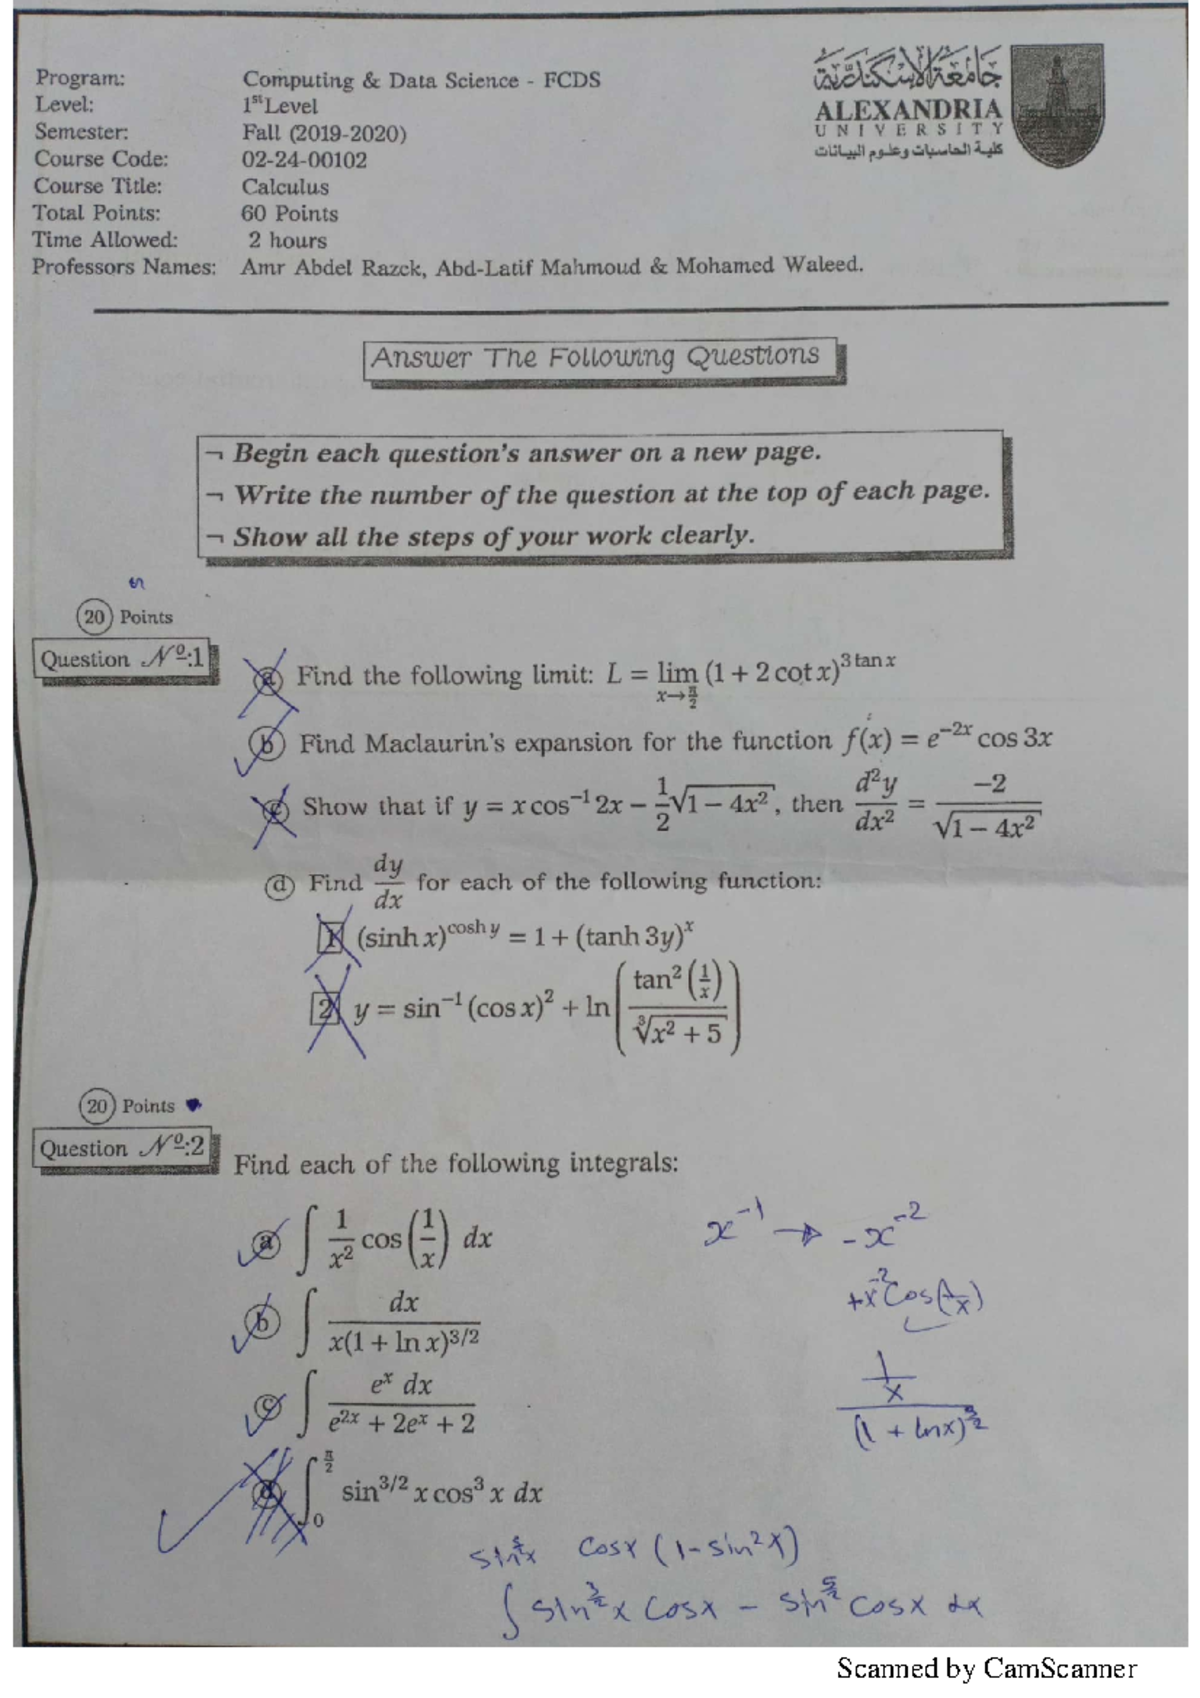 Program: Computing & Data Science - FCDS
Level: 1st Level
Semester: Fall (2019-2020)
Course Code: 02-24-00102
Course Title: Calculus
Total Points: 60 Points
Time Allowed: 2 hours
Professors Names: Amr Abdel Razek, Abd-Latif Mahmoud & Mohamed Waleed.
جامعة الإسكندرية
ALEXANDRIA
UNIVERSITY
كلية الحاسبات وعلوم البيانات
Answer The Following Questions
¬ Begin each question's answer on a new page.
¬ Write the number of the question at the top of each page.
¬ Show all the steps of your work clearly.
20 Points
Question Nº:1
a Find the following limit: L = lim x→π/2 (1 + 2 cot x)^(3 tan x)
b Find Maclaurin's expansion for the function f(x) = e^(-2x) cos 3x
c Show that if y = x cos⁻¹ 2x − 1/2 √(1 − 4x²), then d²y/dx² = −2/√(1 − 4x²)
d Find dy/dx for each of the following function:
1 (sinh x)^(cosh y) = 1 + (tanh 3y)^x
2 y = sin⁻¹ (cos x)² + ln( tan² (1/x) / ∛(x² + 5) )
20 Points
Question Nº:2
Find each of the following integrals:
a ∫ 1/x² cos(1/x) dx
x⁻¹ → -x⁻²
+x⁻² Cos(1/x)
b ∫ dx / x(1 + ln x)^(3/2)
c ∫ e^x dx / e^(2x) + 2e^x + 2
1/x / (1 + lnx)^(3/2)
d ∫₀^(π/2) sin^(3/2) x cos³ x dx
cosx (1-sin²x)
∫ sin^(3/2) x cosx − sin^(5/2) cosx dx
Scanned by CamScanner